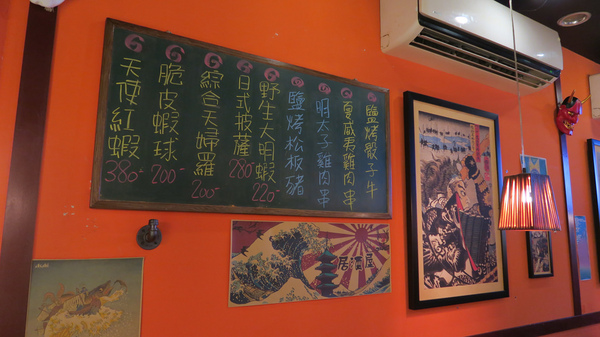 鹽烤骰子牛
夏威夷雞肉串
明太子雞肉串
鹽烤松板豬
野生大明蝦
220-
日式披薩
280-
綜合天婦羅
200-
脆皮蝦球
200-
天使紅蝦
380-
居酒屋